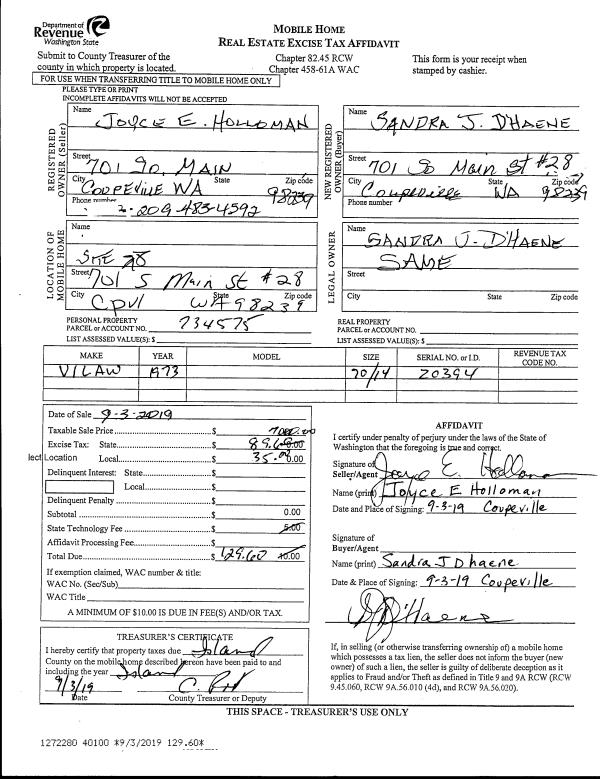 Department of
Revenue
Washington State
MOBILE HOME
REAL ESTATE EXCISE TAX AFFIDAVIT
Submit to County Treasurer of the
county in which property is located.
Chapter 82.45 RCW
Chapter 458-61A WAC
This form is your receipt when
stamped by cashier.
FOR USE WHEN TRANSFERRING TITLE TO MOBILE HOME ONLY
PLEASE TYPE OR PRINT
INCOMPLETE AFFIDAVITS WILL NOT BE ACCEPTED
REGISTERED
OWNER (Seller)
Name
JOYCE E. HOLLOMAN
Street 701 So. MAIN
City State Zip code
COUPEVILLE WA 98239
Phone number
209-483-4592
NEW REGISTERED
OWNER (Buyer)
Name
SANDRA J. DHAENE
Street 701 SO Main St #28
City State Zip code
Coupeville WA 98239
Phone number
LOCATION OF
MOBILE HOME
Name
STE 28
Street 701 S Main St #28
City State Zip code
Cpvl WA 98239
LEGAL OWNER
Name
SANDRA J. D'HAENE
SAME
Street
City State Zip code
PERSONAL PROPERTY
PARCEL or ACCOUNT NO. 734575
LIST ASSESSED VALUE(S): $
REAL PROPERTY
PARCEL or ACCOUNT NO.
LIST ASSESSED VALUE(S): $
MAKE YEAR MODEL SIZE SERIAL NO. or I.D. REVENUE TAX CODE NO.
VILAW 1973 70/14 Z0394
Date of Sale 9-3-2019
Taxable Sale Price $ 7000.00
Excise Tax: State $ 89.60 0.00
lect Location Local $ 35.00 0.00
Delinquent Interest: State $
Local $
Delinquent Penalty $
Subtotal $ 0.00
State Technology Fee $ 5.00
Affidavit Processing Fee $
Total Due $ 129.60 10.00
If exemption claimed, WAC number & title:
WAC No. (Sec/Sub)
WAC Title
A MINIMUM OF $10.00 IS DUE IN FEE(S) AND/OR TAX.
AFFIDAVIT
I certify under penalty of perjury under the laws of the State of
Washington that the foregoing is true and correct.
Signature of
Seller/Agent Joyce E. Holloman
Name (print) Joyce E Holloman
Date and Place of Signing: 9-3-19 Coupeville
Signature of
Buyer/Agent
Name (print) Sandra J Dhaene
Date & Place of Signing: 9-3-19 Coupeville
SJD'Haene
TREASURER'S CERTIFICATE
I hereby certify that property taxes due Island
County on the mobile home described hereon have been paid to and
including the year Island
9/3/19
Date County Treasurer or Deputy
If, in selling (or otherwise transferring ownership of) a mobile home
which possesses a tax lien, the seller does not inform the buyer (new
owner) of such a lien, the seller is guilty of deliberate deception as it
applies to Fraud and/or Theft as defined in Title 9 and 9A RCW (RCW
9.45.060, RCW 9A.56.010 (4d), and RCW 9A.56.020).
THIS SPACE - TREASURER'S USE ONLY
1272280 40100 *9/3/2019 129.60*